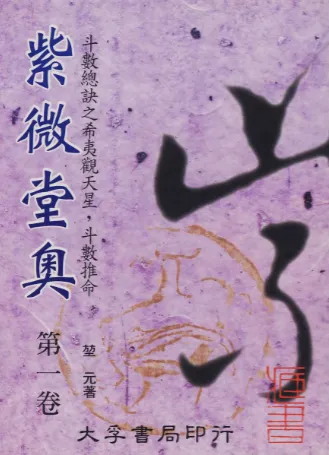 紫微堂奧
斗數總訣之希夷觀天星，斗數推命
第一卷
堃元著
大孚書局印行